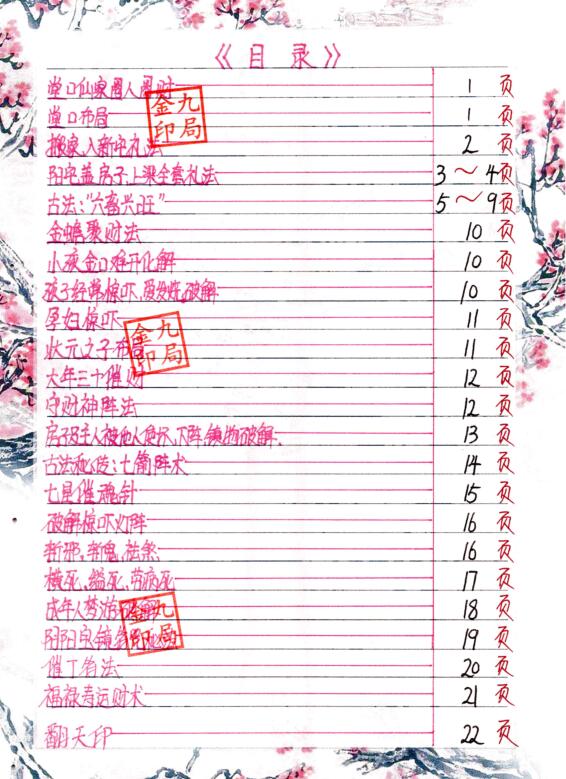 《目 录》
堂口仙家圈人圈财 1 页
堂口布局 1 页
搬家入新宅礼法 2 页
阳宅盖房子上梁全套礼法 3～4页
古法："六畜兴旺" 5～9页
金蟾聚财法 10 页
小孩金口难开化解 10 页
孩子经常惊吓、爱发烧破解 10 页
孕妇惊吓 11 页
状元之子布局 11 页
大年三十催财 12 页
守财神阵法 12 页
房子及主人被他人使坏、下阵、镇物破解、 13 页
古法秘传：七箭阵术 14 页
七星催魂针 15 页
破解惊吓灯阵 16 页
斩邪、斩鬼、祛煞 16 页
横死、缢死、劳病死 17 页
成年人梦游破解 18 页
阴阳宝镜 19 页
催丁有法 20 页
福禄寿运财术 21 页
翻天印 22 页
金九印局
金九印局
金九印局